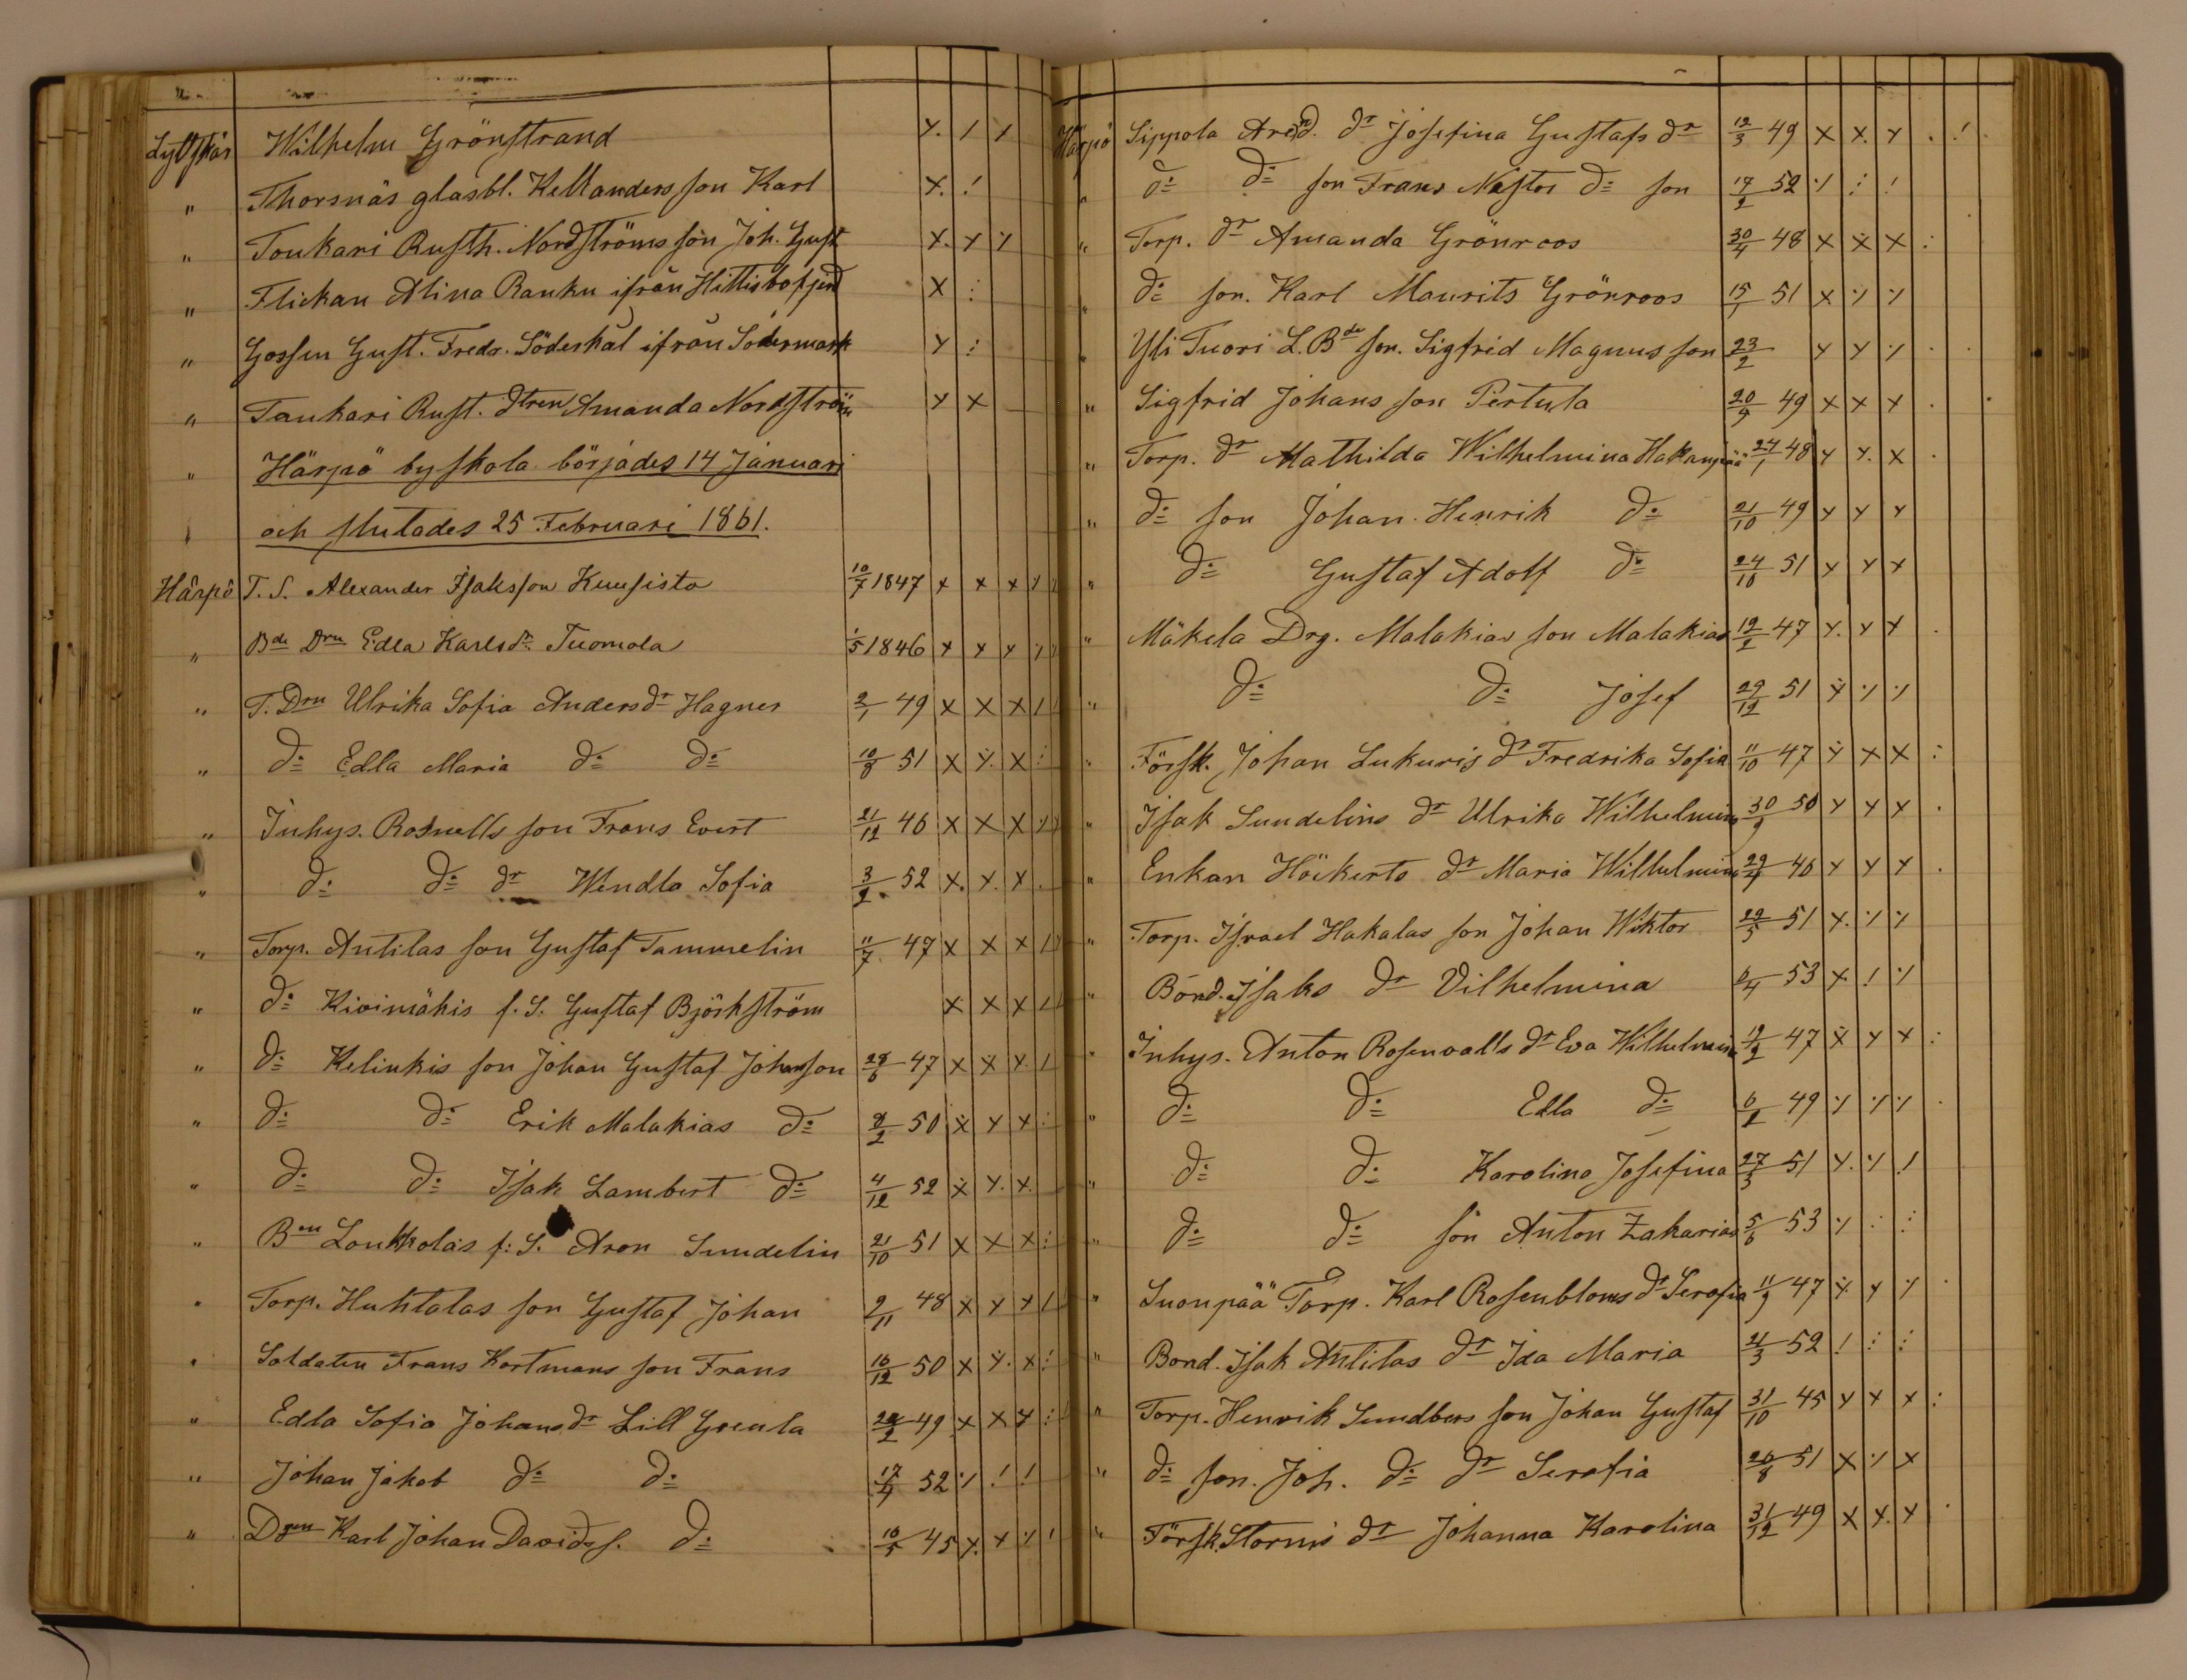 Wilhelm Grönstrand X. / X
" Thorsnäs glasbl. Kellanders son Karl X. !
" Toukari Rusth. Nordströms son Joh. Gust X. X ⁒
" Flickan Alina Ranku ifrån Hittisbofjerd X :
" Gossen Gust. Fredr. Söderkål ifrån Södermark X :
" Taukari Rust. dtren Amanda Nordström X X
" Härpö byskola börjades 14 Januari
och slutades 25 Februari 1861.
Härpö T. S. Alexander Isaksson Kuusisto 10/7 1847 X X X
" Bde Drn Edla Karlsdr Tuomola 1/5 1846 X X X
" T. Drn Ulrika Sofia Andersdr Hagner 2/1 49 X X X /
" d:o Edla Maria d:o d:o 10/8 51 X X X :
" Inhys. Rosnells son Frans Evert 21/12 46 X X X
" d:o d:o dr Wendla Sofia 3/2 52 X. X. X .
" Torp. Antilas son Gustaf Tammelin 11/7 47 X X X /
" d:o Kivimäkis f. S. Gustaf Björkström X X X /
" d:o Kelinkis son Johan Gustaf Johansson 28/6 47 X X X /
" d:o d:o Erik Malakias d:o 2/2 50 X X X :
" d:o d:o Isak Lambert d:o 4/12 52 X X. X.
" Ben Loukkolas f: S. Aron Sundelin 21/10 51 X X X :
" Torp. Huhtalas son Gustaf Johan 2/11 48 X X X /
" Soldaten Frans Hortmans son Frans 16/12 50 X X. X :
" Edla Sofia Johansdr Lill Greula 49 X X X :
" Johan Jakob d:o d:o 17/4 52 ⁒ ! !
" Karl Johan Davidss. d:o 10/5 45 X. X ⁒ !
Härpö Sippola Arend. dr Josefina Gustafs dr 12/3 49 X X. X . !
" d:o d:o son Frans Nestor d:o son 17/2 52 ⁒ : !
" Torp. dr Amanda Grönroos 30/4 48 X X X :
" d:o son. Karl Maurits Grönroos 15/1 51 X ⁒ ⁒
" Yli Tuori L. Bde son. Sigfrid Magnus son 23/2 X X ⁒ .
" Sigfrid Johans son Pertula 20/4 49 X X X .
" Torp. dr Mathilda Wilhelmina Hakanpää 24/1 48 X X. X .
" d:o son Johan Henrik d:o 21/10 49 X X X
" d:o Gustaf Adolf d:o 24/10 51 X X X
" Mäkela Drg. Malakias son Malakias 12/2 47 X. X X .
" d:o d:o Josef 29/12 51 X ⁒ ⁒
" Försk. Johan Lukuris dr Fredrika Sofia 11/10 47 X X X :
" Isak Sundelins dr Ulrika Wilhelmina 30/9 50 X X X .
" Enkan Höckerts dr Maria Wilhelmina 29/4 46 X X X .
" Torp. Israel Hakalas son Johan Wiktor 29/5 51 X. ⁒ ⁒
" Bond. Isaks dr Vilhelmina 6/4 53 X ! ⁒
" Inhys. Anton Rosenvalls dr Eva Wilhelmina 12/2 47 X X X :
" d:o d:o Edla d:o 6/2 49 ⁒ ⁒ ⁒ .
" d:o d:o Karolina Josefina 27/3 51 X. ⁒ !
" d:o d:o son Anton Zakarias 5/6 53 ⁒ : :
" Suonpää Torp. Karl Rosenbloms dr Serafia 11/9 47 X X ⁒ .
" Bond. Isak Antilas dr Ida Maria 21/3 52 ! : :
" Torp. Henrik Sundbers son Johan Gustaf 31/10 45 X X X :
" d:o son. Joh. d:o dr Serafia 26/8 51 X ⁒ X
" Försk. Storms dr Johanna Karolina 31/12 49 X X. X .